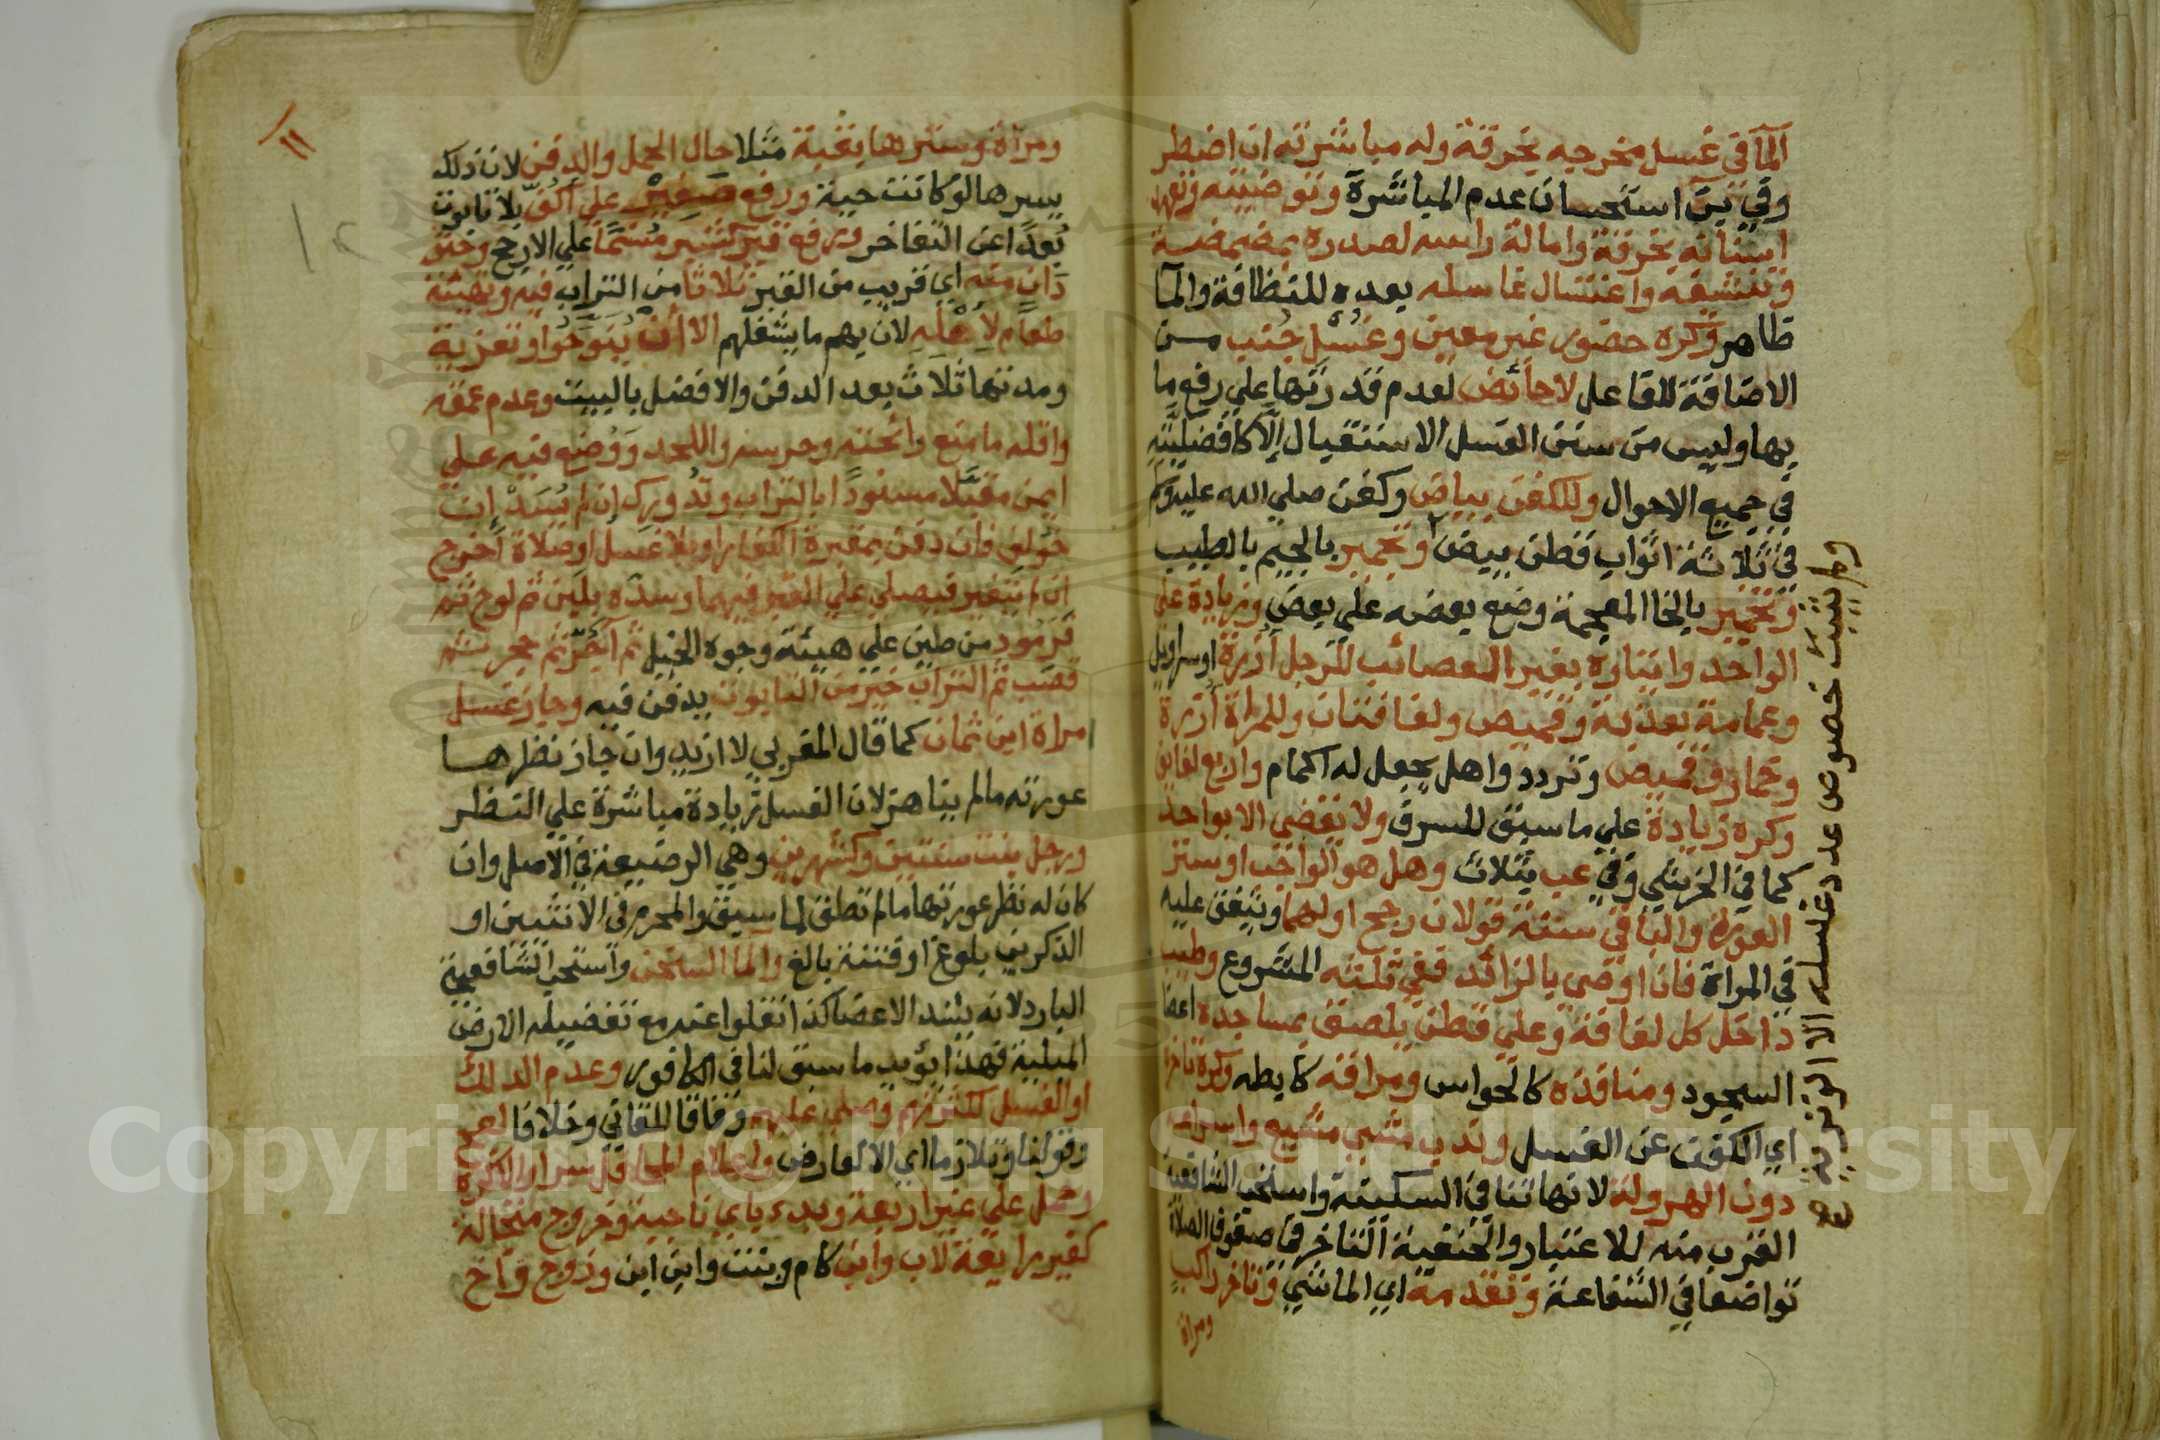 الماء في غسل مخرجيه بخرقة وله مباشرته ان اضطر
وفي بن استحسان عدم المباشرة وتوضيئه وتعهد
اسنانه بخرقة وامالة راسه لصدره بمضمضة
وتنشيفه واغتسال غاسله بعده للنظافة والما
طاهر وكره حضور غير معين وغسل جنب من
الاضافة للفاعل لا حائض لعدم قدرتها علي رفع ما
بها وليس من سنن الغسل الاستقبال الا كافضليته
في جميع الاحوال وللكفن بياض وكفن صلي الله عليه وسلم
في ثلاثة اثواب قطن بيض وتجمير بالجيم بالطيب
وتخمير بالخا المعجمة وضع بعضه علي بعض وزيادة علي
الواحد وايتاره بغير العصائب للرجل ازرة او سراويل
وعمامة بعذبة وقميص ولفافتان وللمراة ازرة
وخمار وقميص وتردد وهل يجعل له اكمام واربع لفايف
وكره زيادة علي ما سبق للسرف ولا يقضي الا بواحد
كما في الخرشي وفي عب بثلاث وهل هو الواجب او ستر
العورة والباقي سنة قولان رجح اولهما ويتفق عليه
في المراة فان اوصى بالزائد ففي ثلثه المشروع وطيب
داخل كل لفافة وعلي قطن يلصق بمساجده اعضا
السجود ومنافذه كالحواس ومراقه كابطه وكره تاخره
اي الكفن عن الغسل وندب مشي مشيع واسراعه
دون الهرولة لانها تنافي السكينة واستحب الشافعية
القرب منه للاعتبار والحنفية التاخر في صفوف الصلاة
تواضعا في الشفاعة وتقدمه اي الماشي وتاخر راكب
ومراة
ولم يثبت خصوص عدد غسله الا الوتر
١١
١٢
ومراة وسترها بقبة مثلا حال الحمل والدفن لان ذلك
يسرها لو كانت حية ورفع صغير علي اكف بلا تابوت
بعدا عن التفاخر ورفع قبر كشبر مسنما علي الارجح وحثو
دان منه اي قريب من القبر ثلاثا من التراب فيه وتهيئة
طعام لاهله لان بهم ما يشغلهم الا ان ينوحوا وتعزية
ومدتها ثلاث بعد الدفن والافضل بالبيت وعدم عمقه
واقله ما منع رائحته وحرسه واللحد ووضع فيه علي
ايمن مقبلا مسنودا بالتراب وتدورك ان لم يسد ان
خولف فان دفن بمقبرة الكفار او بلا غسل او صلاة اخرج
ان لم يتغير فيصلي علي القبر فيهما وسده بلبن ثم لوح ثم
قرمود من طين علي هيئة وجوه الخيل ثم آجر ثم حجر ثم
قصب ثم التراب خير من التابوت يدفن فيه وجاز غسل
مراة ابن ثمان كما قال المغربي لا ازيد وان جاز نظرها
عورته ما لم يناهز لان الغسل زيادة مباشرة علي النظر
ورجل بنت سنتين وكشهرين وهي الرضيعة في الاصل وان
كان له نظر عورتها ما لم تطق لما سبق والمحرم في الانثيين او
الذكرين بلوغ او فتنة بالغ والما السخن واستحب الشافعية
البارد لانه يشد الاعضا كذا نقلوا عنه مع تفضيله الارض
المبلية فهذا يؤيد ما سبق لنا في الكافور وعدم الدلك
او الغسل لكثرتهم وصلي عليهم وفاقا للقاني وخلافا لعج
وقولنا وتلازما اي الا لعارض واعلام المحافل سرا والكثرة
وحمل علي غير اربعة وبدء باي ناحية وخروج متجالة
كغيرها يعة لاب وابن كام وبنت وابن ابن وزوج واخ